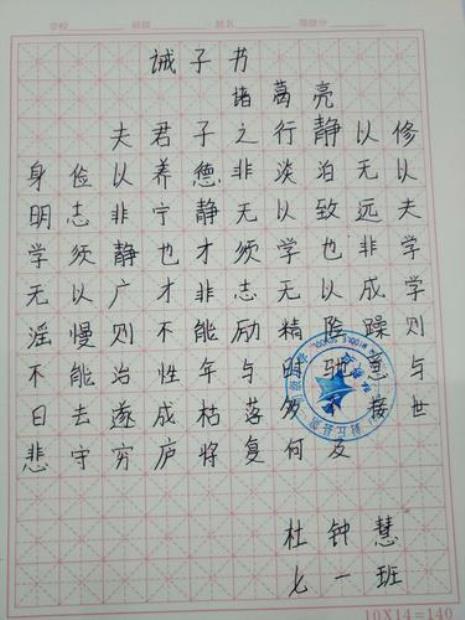 诫子书
诸葛亮
夫君子之行静以修
身俭以养德非淡泊无以
明志非宁静无以致远夫
学须静也才须学也非学
无以广才非志无以成学
淫慢则不能励精险躁则
不能治性年与时驰意与
日去遂成枯落多不接世
悲守穷庐将复何及
杜钟慧
七一班
10X14=140